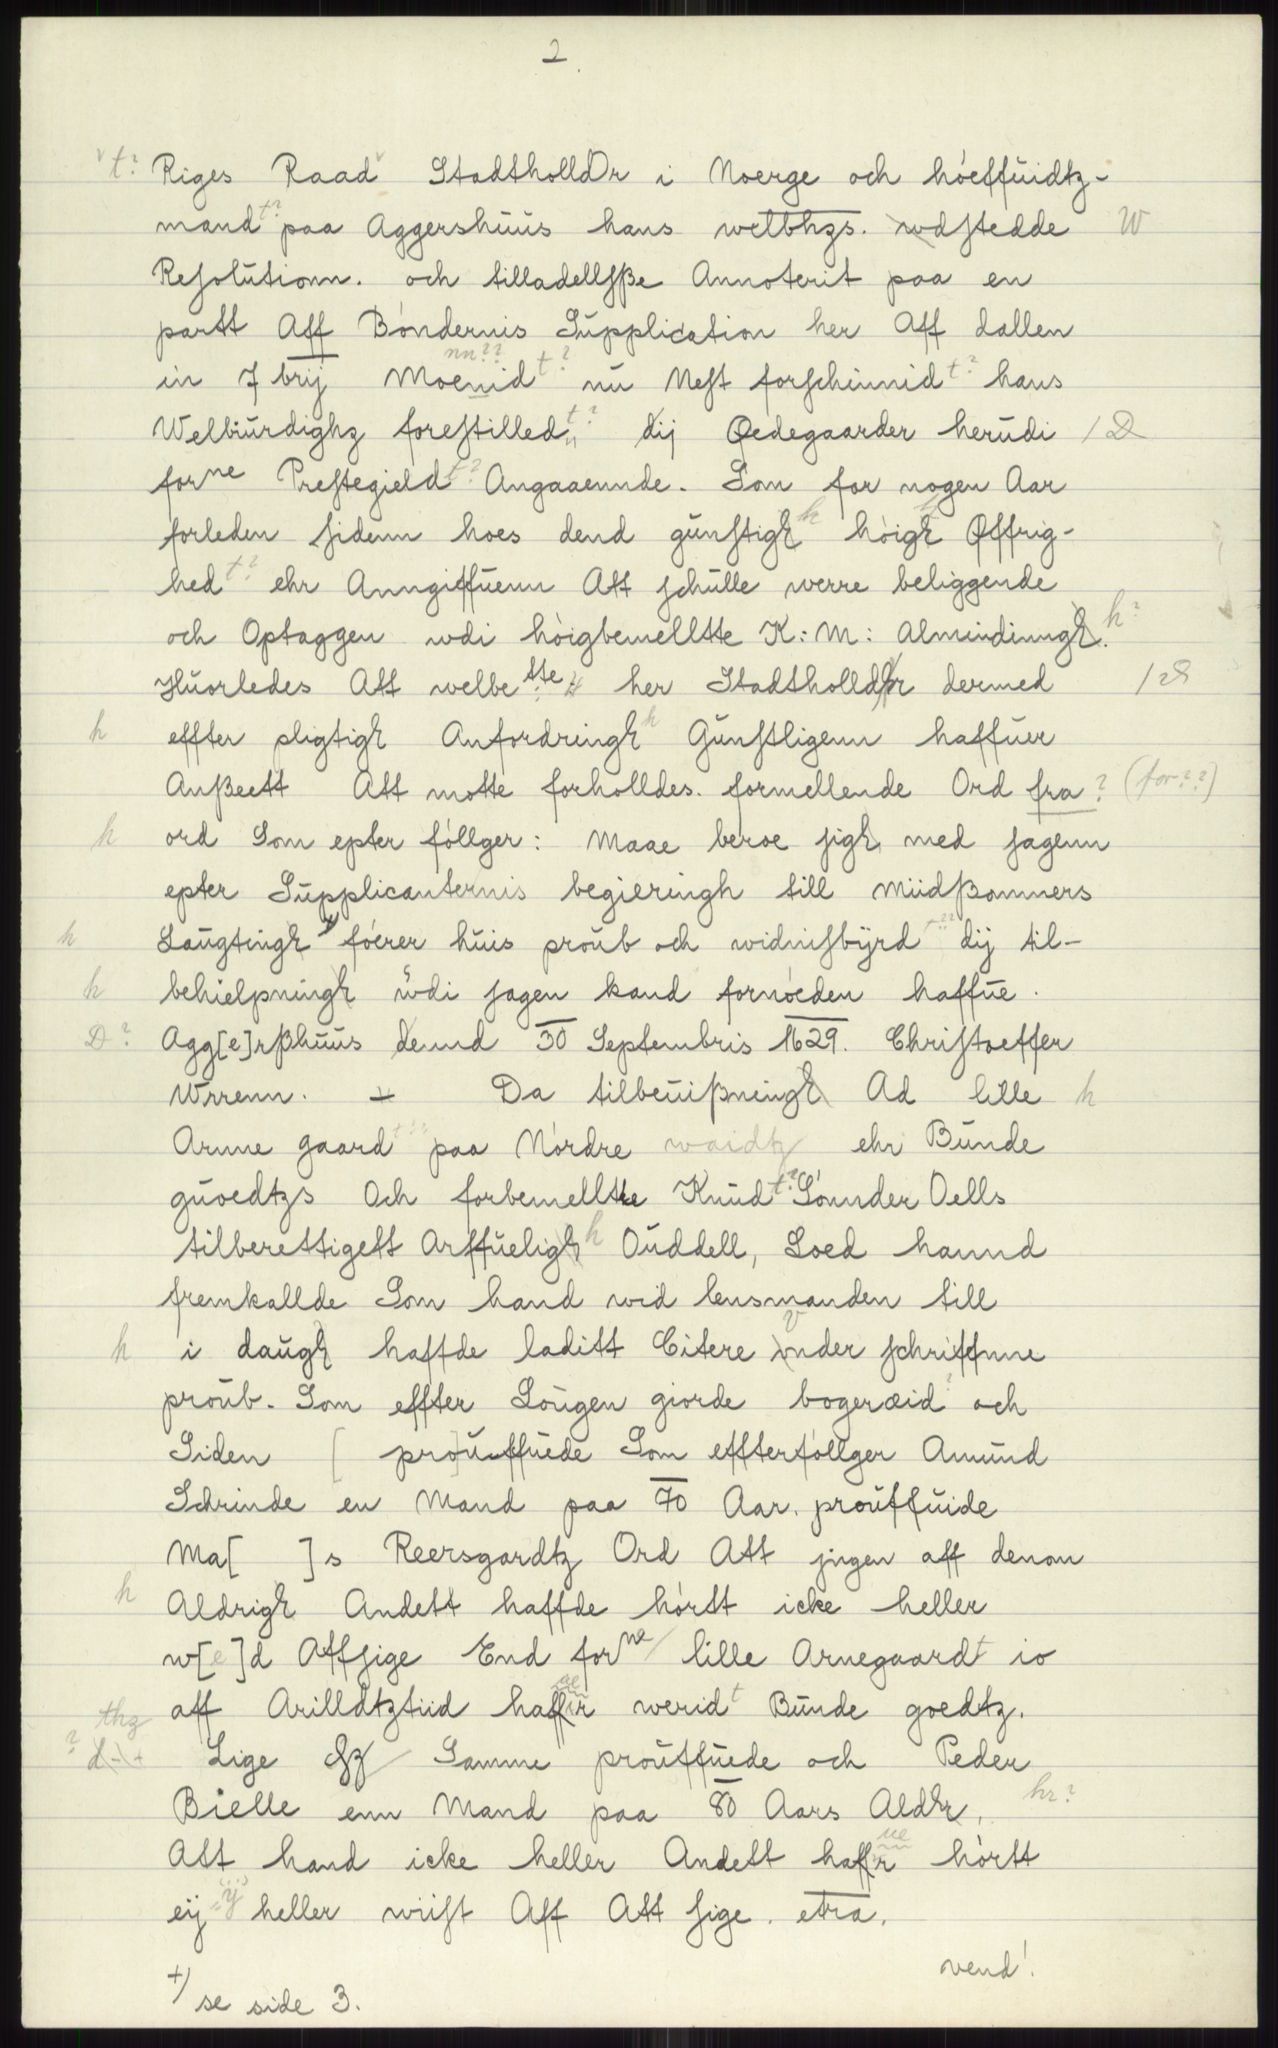 2.
t? Riges Raad Stadtholldr i Noerge och hóeffuidtz-
mand t? paa Aggershuus hans wetbhzs. wdstedde W
Resolutionn. och tilladellsße Annoterit paa en
partt Aff Bóndernis Supplication her Aff dallen
nn?? t? t?
in 7 brij Moenid nu Nest forschinnid hans
Welbiurdighz forestilled t? dij Øedegaarder herudi / D
forne Prestegield t? Angaaennde. Som for nogen Aar
forleden sidenn hoes dend gunstigh hóigh Øffrig-
hed t? ehr Anngiffuenn Att schulle werre beliggende
och Optaggen wdi hóigbemelltte K: M: Almindinngh. h?
Huorledes Att welbe tte her Stadthollder dermed
h effter pligtigh Anfordringh h Gunstligenn haffuer
Anßeett Att motte forholldes. formellende Ord fra? (for??)
h ord Som epter fóllger: Maae beroe sigh med sagenn
epter Supplicanternis begieringh till Miidßommers
h Laugtingh fóerer huis proub och widnisbyrd t?? dij til-
h behielpningh wdi sagen kand fornóeden haffue.
D? Agg[e]rßhuus dennd 30 Septembris 1629. Christoeffer
Wrrenn. + Da tilbeuißningh Ad lille h
Arnne gaard t?? paa Nórdre waidtz ehr Bunde
guoedtzs Och forbemelltte Knud t? Sónnder Oells
tilberettigett Arffueligh h Ouddell, Loed hannd
fremkallde Som hand wid lensmanden till
h i daugh haffde laditt Citere vnder schriffnne
proub. Som effter Lougen giorde bogeræid? och
Siden [ prouffuede Som effterfóllger Amund
Schrinde en Mand paa 70 Aar. prouffuide
Ma[ ]s Reersgardtz Ord Att jngen aff denom
h Aldrigh Andett haffde hórtt icke heller
w[e]d Affsige End forne / lille Arnegaardt io
aff Arilldtztiid haffr werid t Bunde goedtz.
thz
? Lige Samme prouffuede och Peder
Bielle enn Mand paa 80 Aars Aldr, hr?
ue
Att hand icke heller Andett haffr hórtt
eij ÿ heller wiist Aff Att sige. etra.
vend!
+/ se side 3.